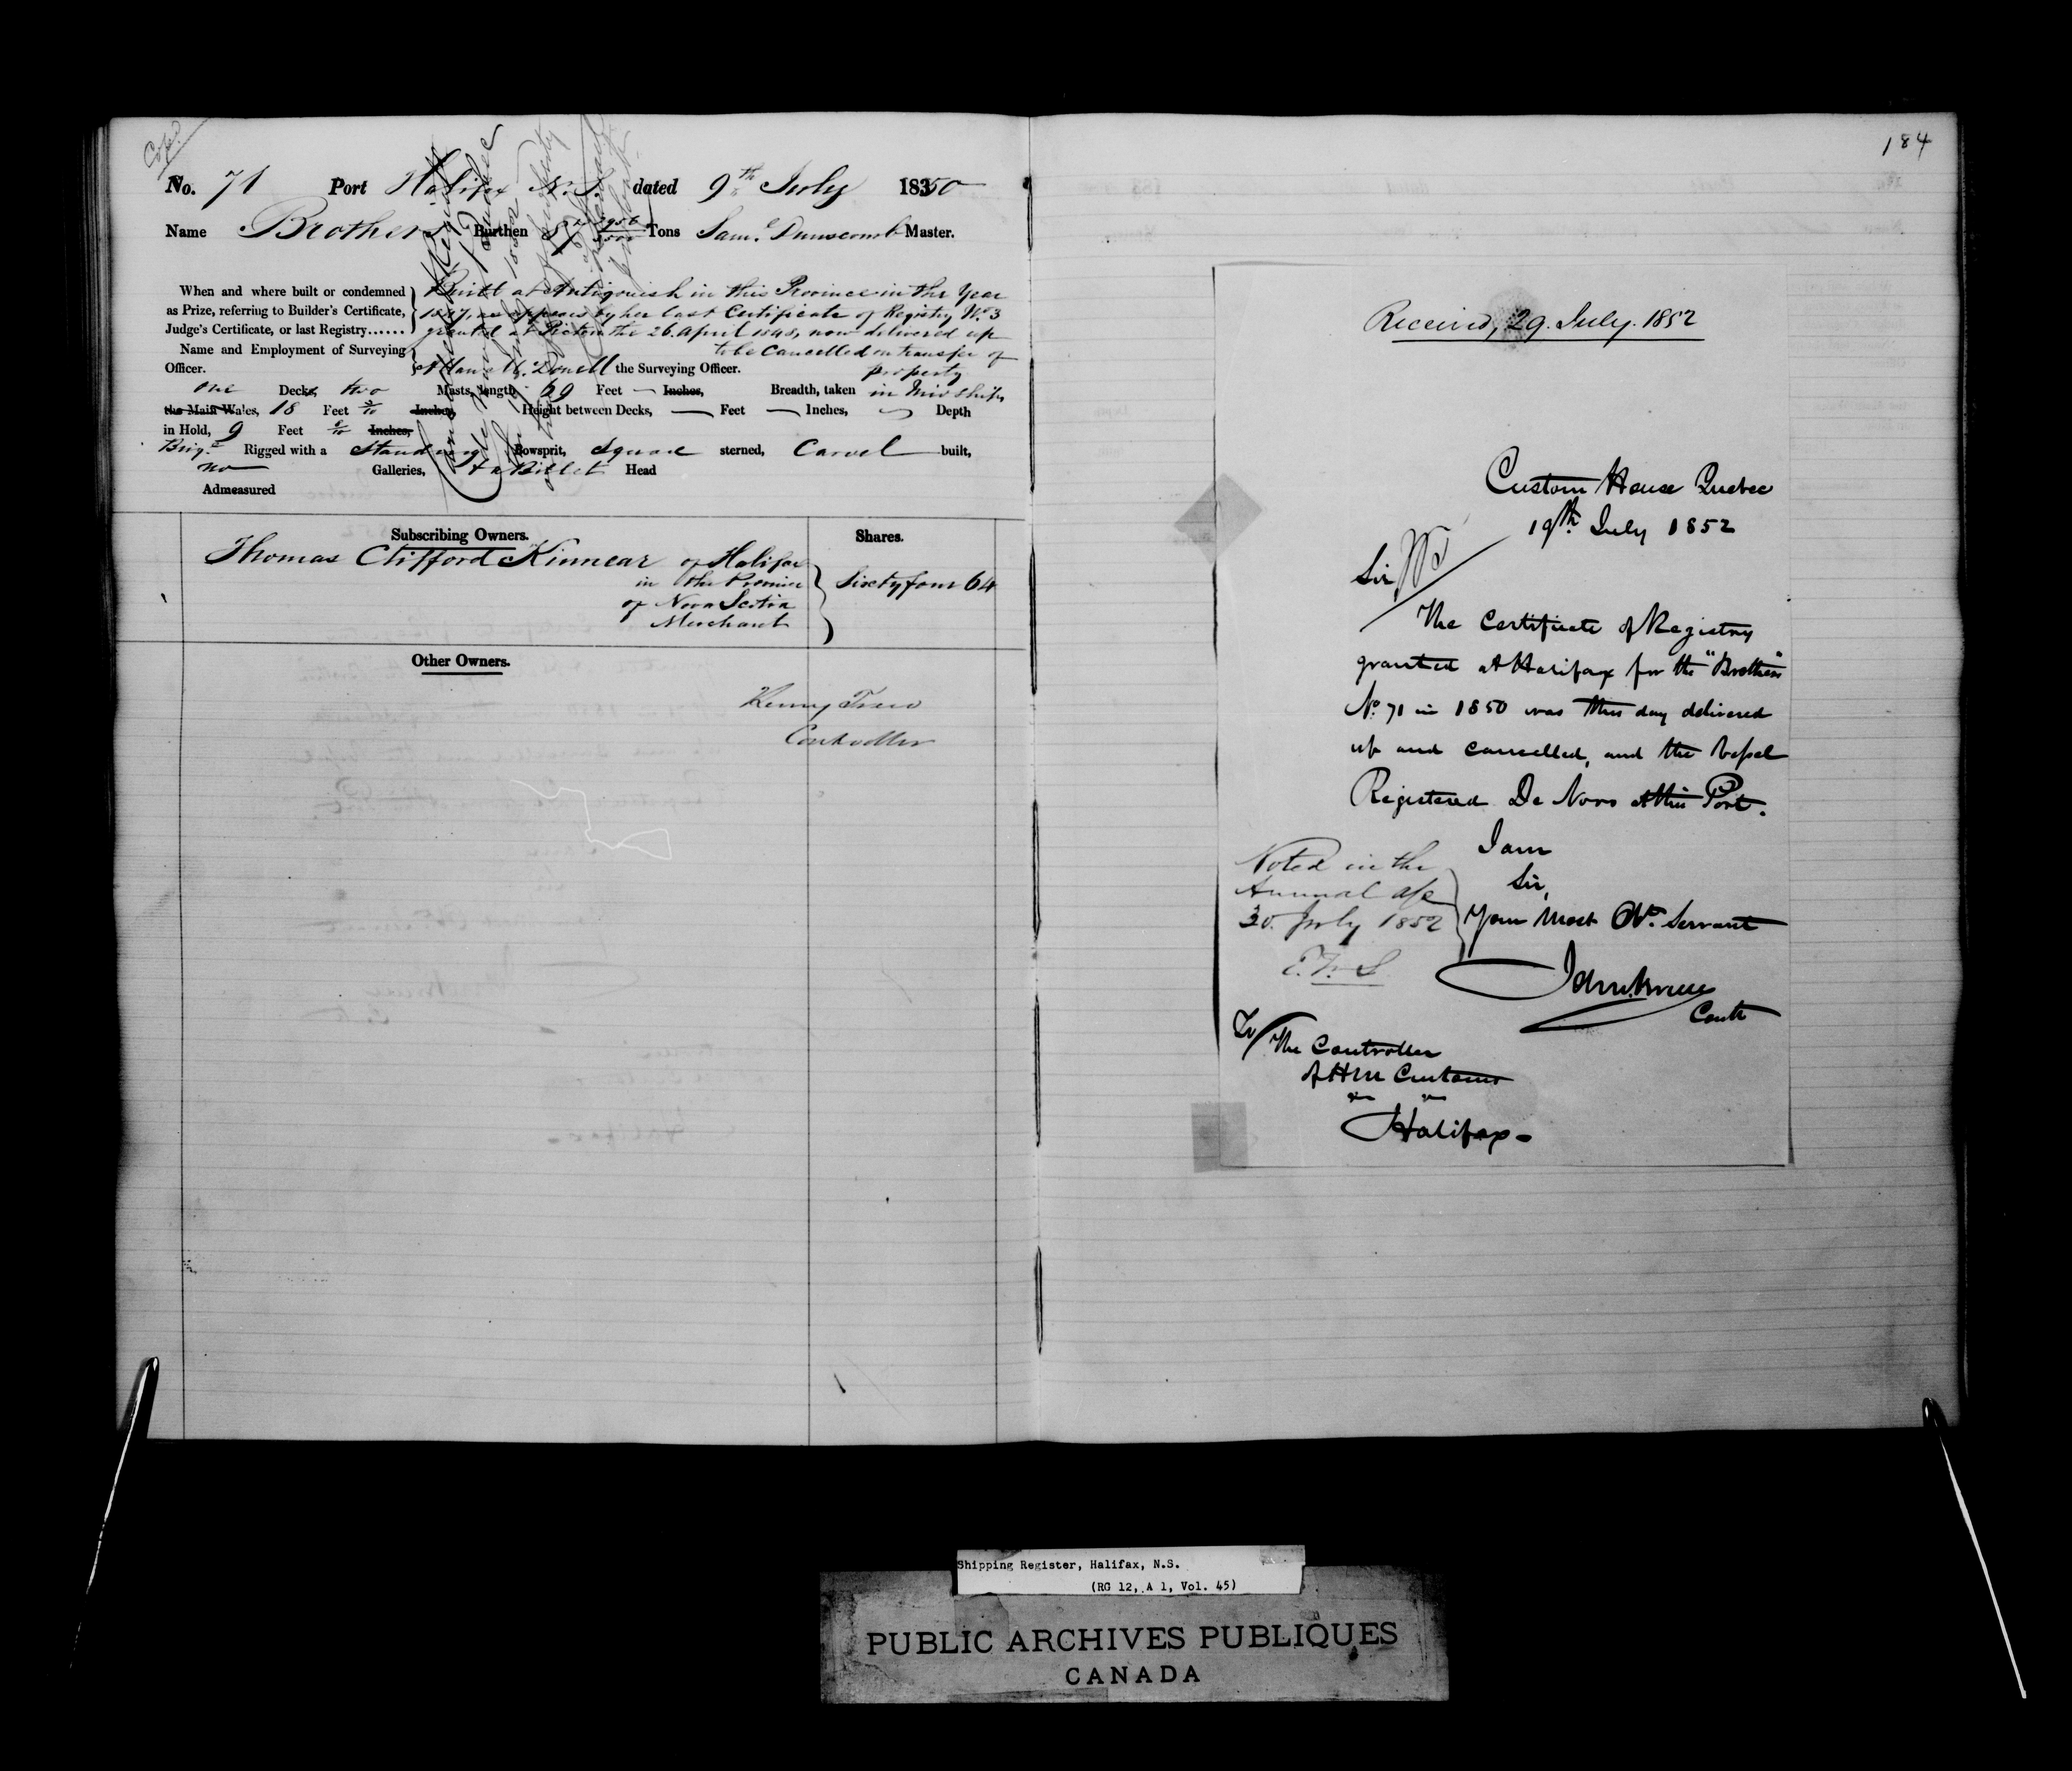 Copd.
No. 71 Port Halifax N.S. dated 9th July 1850
Name Brothers Burthen 87 2956/3500 Tons Saml. Dunscomb Master.
When and where built or condemned
as Prize, referring to Builder's Certificate,
Judge's Certificate, or last Registry......
Built at Antigonish in this Province in the Year
1847, as appears by her last Certificate of Registry No. 3
granted at Pictou the 26 April 1848, now delivered up
to be Cancelled on transfer of
property
Name and Employment of Surveying
Officer.
Allan McDonell the Surveying Officer.
one Decks, two Masts, length 69 Feet — Inches, Breadth, taken in Mid ships
the Main Wales, 18 Feet Inches, Height between Decks, — Feet — Inches, Depth
in Hold, 9 Feet Inches,
Brigt. Rigged with a Standing Bowsprit, Square sterned, Carvel built,
no Galleries, & a Billet Head
Admeasured
Subscribing Owners. Shares.
Thomas Clifford Kinnear of Halifax
in the Province
of Nova Scotia
Merchant
Sixty four 64
Other Owners.
Controller
184
Received, 29. July. 1852
Custom House Quebec
19th July 1852
Sir
The Certificate of Registry
granted at Halifax for the "Brothers"
No. 71 in 1850 was this day delivered
up and cancelled, and the Vessel
Registered De Novo at this Port.
I am
Sir,
Your Most Obt. Servant
Contr
Noted in the
Annual a/c
30. July 1852
To/ The Controller
of HM Customs
Halifax-
Shipping Register, Halifax, N.S.
(RG 12, A 1, Vol. 45)
PUBLIC ARCHIVES PUBLIQUES
CANADA